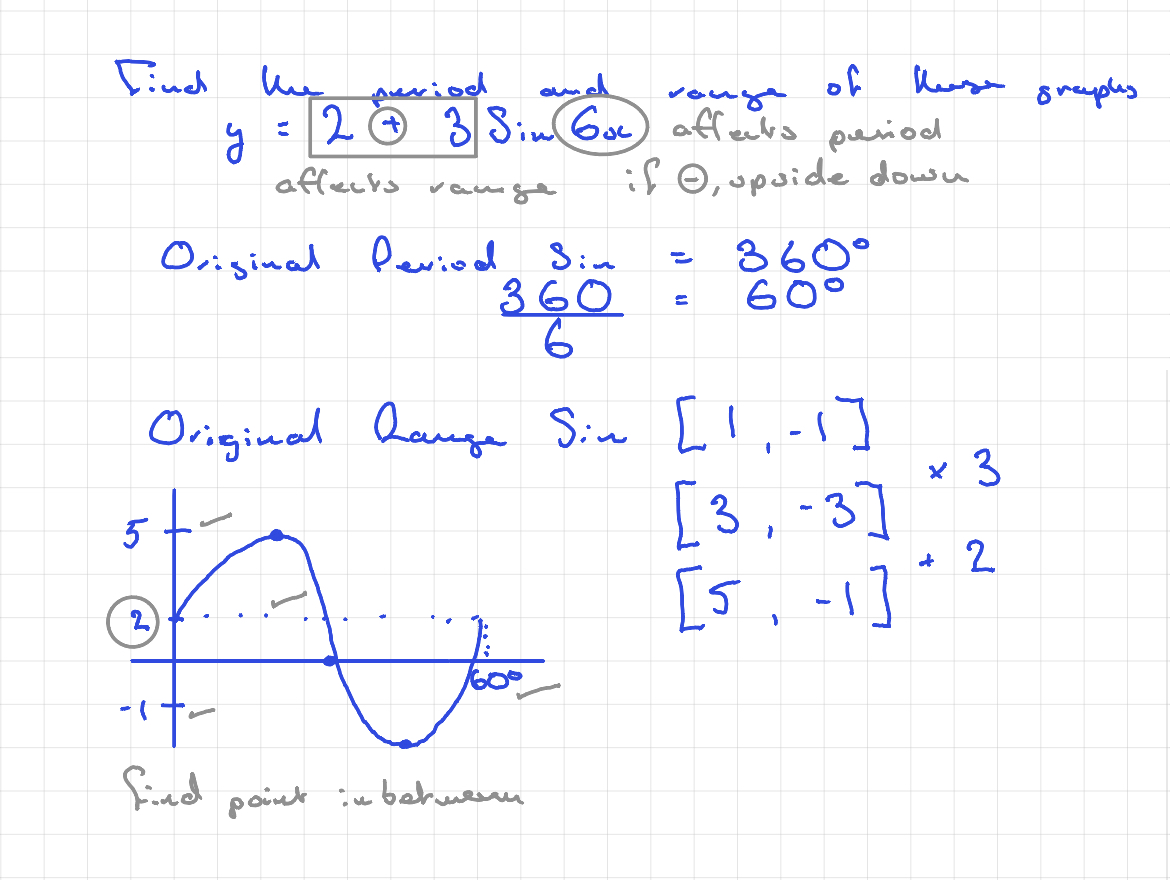 Find the period and range of these graphs
y = 2 + 3 Sin 6x affects period
affects range if ⊖, upside down
Original Period Sin = 360°
360 = 60°
6
Original Range Sin [1, -1]
× 3
[3, -3]
+ 2
[5, -1]
5
2
60°
-1
find point in between